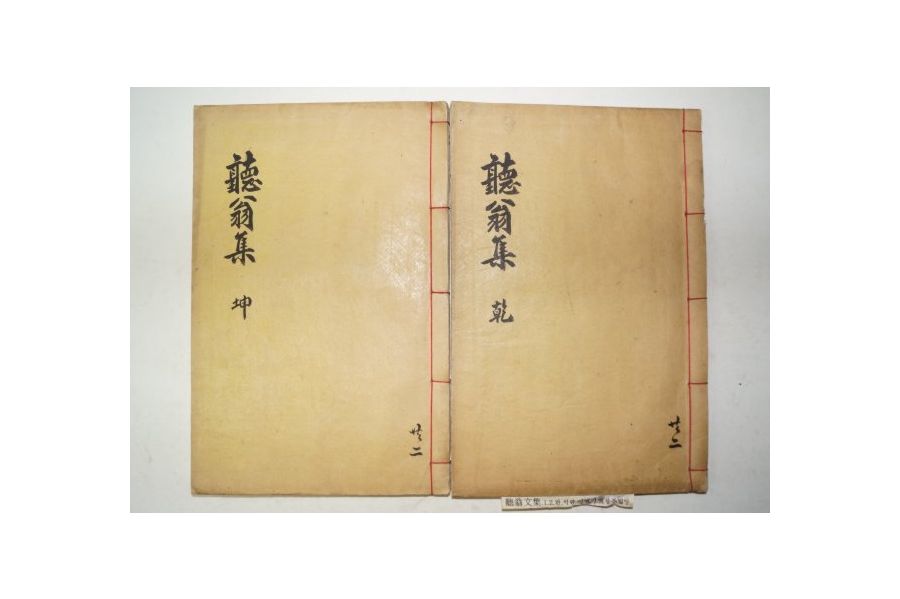 聽翁集 乾
共二
聽翁集 坤
共二
聽翁文集